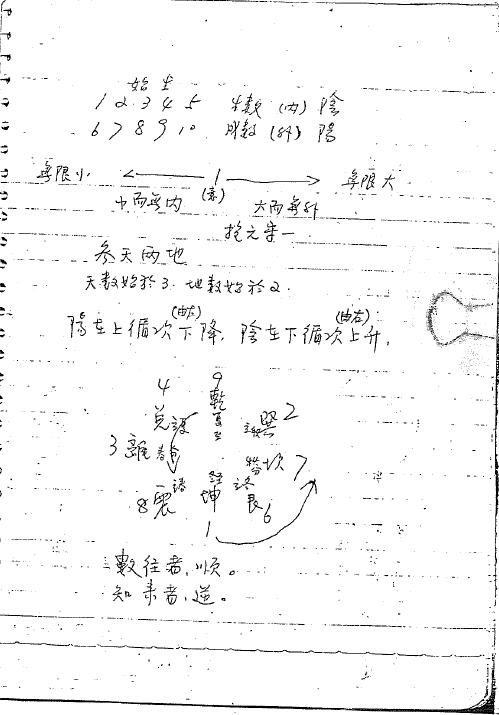 始生
1 2 3 4 5 生數 (內) 陰
6 7 8 9 10 成數 (外) 陽
無限小 ← 1 → 無限大
小而無內 大而無外
抱元守一
參天兩地
天數始於3. 地數始於2.
(由左) (由右)
陽左上循次下降, 陰左下循次上升.
4 9
兌 乾 夏至 巽 2
3 離 春分 秋分 坎 7
8 震 坤 艮 6
1
數往者,順。
知來者,逆。